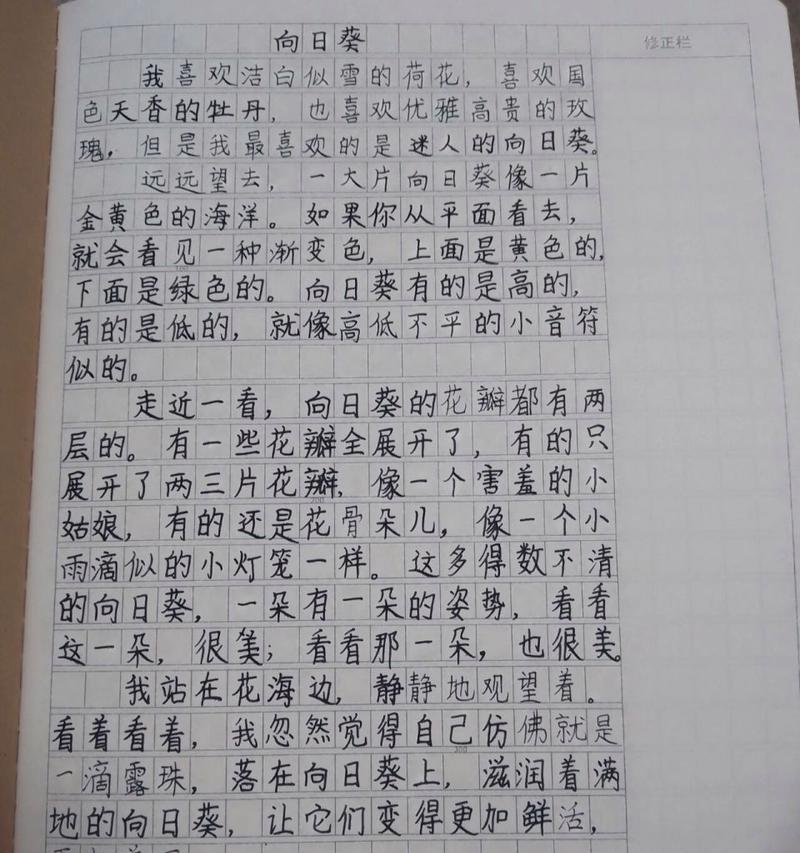 向日葵
修正栏
我喜欢洁白似雪的荷花，喜欢国
色天香的牡丹，也喜欢优雅高贵的玫
瑰，但是我最喜欢的是迷人的向日葵。
远远望去，一大片向日葵像一片
金黄色的海洋。如果你从平面看去，
就会看见一种渐变色，上面是黄色的，
100
下面是绿色的。向日葵有的是高的，
有的是低的，就像高低不平的小音符
似的。
走近一看，向日葵的花瓣都有两
层的。有一些花瓣全展开了，有的只
展开了两三片花瓣，像一个害羞的小
200
姑娘，有的还是花骨朵儿，像一个小
雨滴似的小灯笼一样。这多得数不清
的向日葵，一朵有一朵的姿势，看看
这一朵，很美；看看那一朵，也很美。
我站在花海边，静静地观望着。
看着看着，我忽然觉得自己仿佛就是
300
一滴露珠，落在向日葵上，滋润着满
地的向日葵，让它们变得更加鲜活，